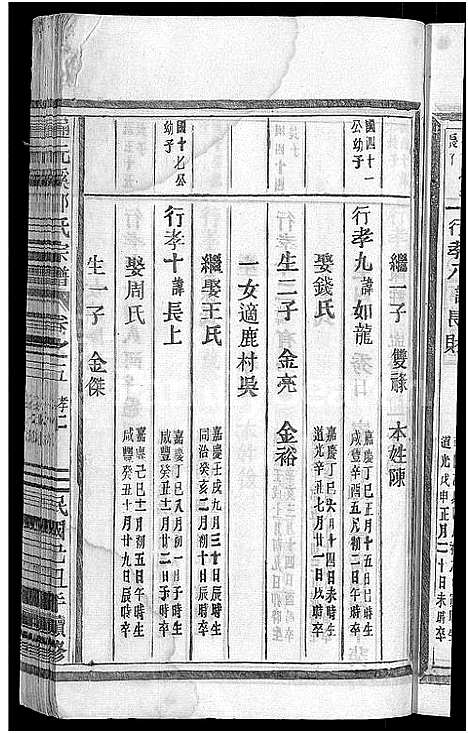 行孝八諱長財
道光戊申正月二十日未時卒
繼一子 雙祿 本姓陳
國四十一公幼子
行孝九諱如龍
嘉慶丁巳正月十五日巳時生
咸豐辛酉五月初二日午時卒
娶錢氏
嘉慶丁巳六月十四日寅時生
道光辛丑七月廿一日戌時卒
生二子 金亮 金裕
一女適鹿村吳
繼娶王氏
嘉慶壬戌九月三十日辰時生
同治癸亥二月初十日辰時卒
國十七公幼子
行孝十諱長上
嘉慶丁巳八月初一日子時生
咸豐癸丑十一月廿二日子時卒
娶周氏
嘉慶己巳十二月初五日午時生
咸豐癸丑十月廿九日辰時卒
生一子 金傑
阮溪鄭氏宗譜 卷之五 孝 民國己丑年續修